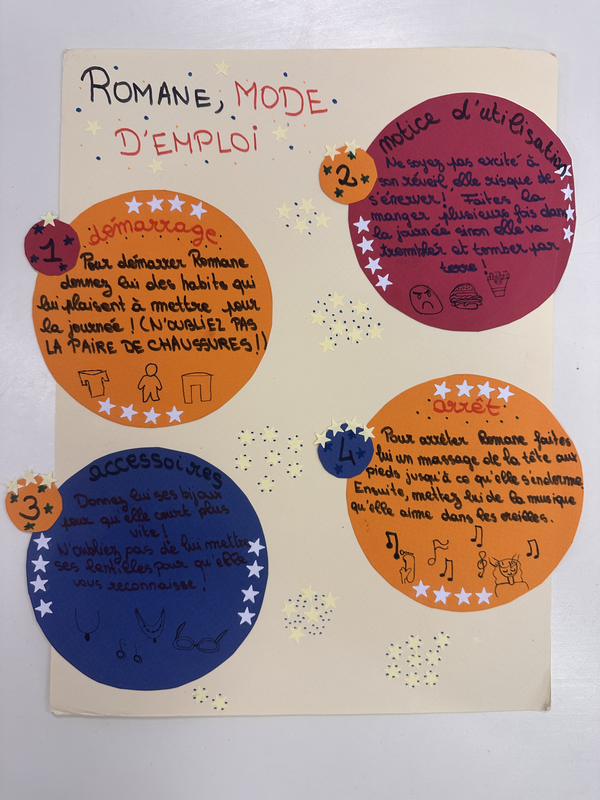 ROMANE, MODE
D'EMPLOI
1
démarrage
Pour démarrer Romane
donnez lui des habits qui
lui plaisent à mettre pour
la journée ! (N'OUBLIEZ PAS
LA PAIRE DE CHAUSSURES !)
2
notice d'utilisation
Ne soyez pas excité à
son réveil elle risque de
s'énerver ! Faites la
manger plusieurs fois dans
la journée sinon elle va
trembler et tomber par
terre !
3
accessoires
Donnez lui ses bijoux
pour qu'elle court plus
vite !
N'oubliez pas de lui mettre
ses lentilles pour qu'elle
vous reconnaisse !
4
arrêt
Pour arrêter Romane faites
lui un massage de la tête aux
pieds jusqu'à ce qu'elle s'endorme.
Ensuite, mettez lui de la musique
qu'elle aime dans les oreilles.